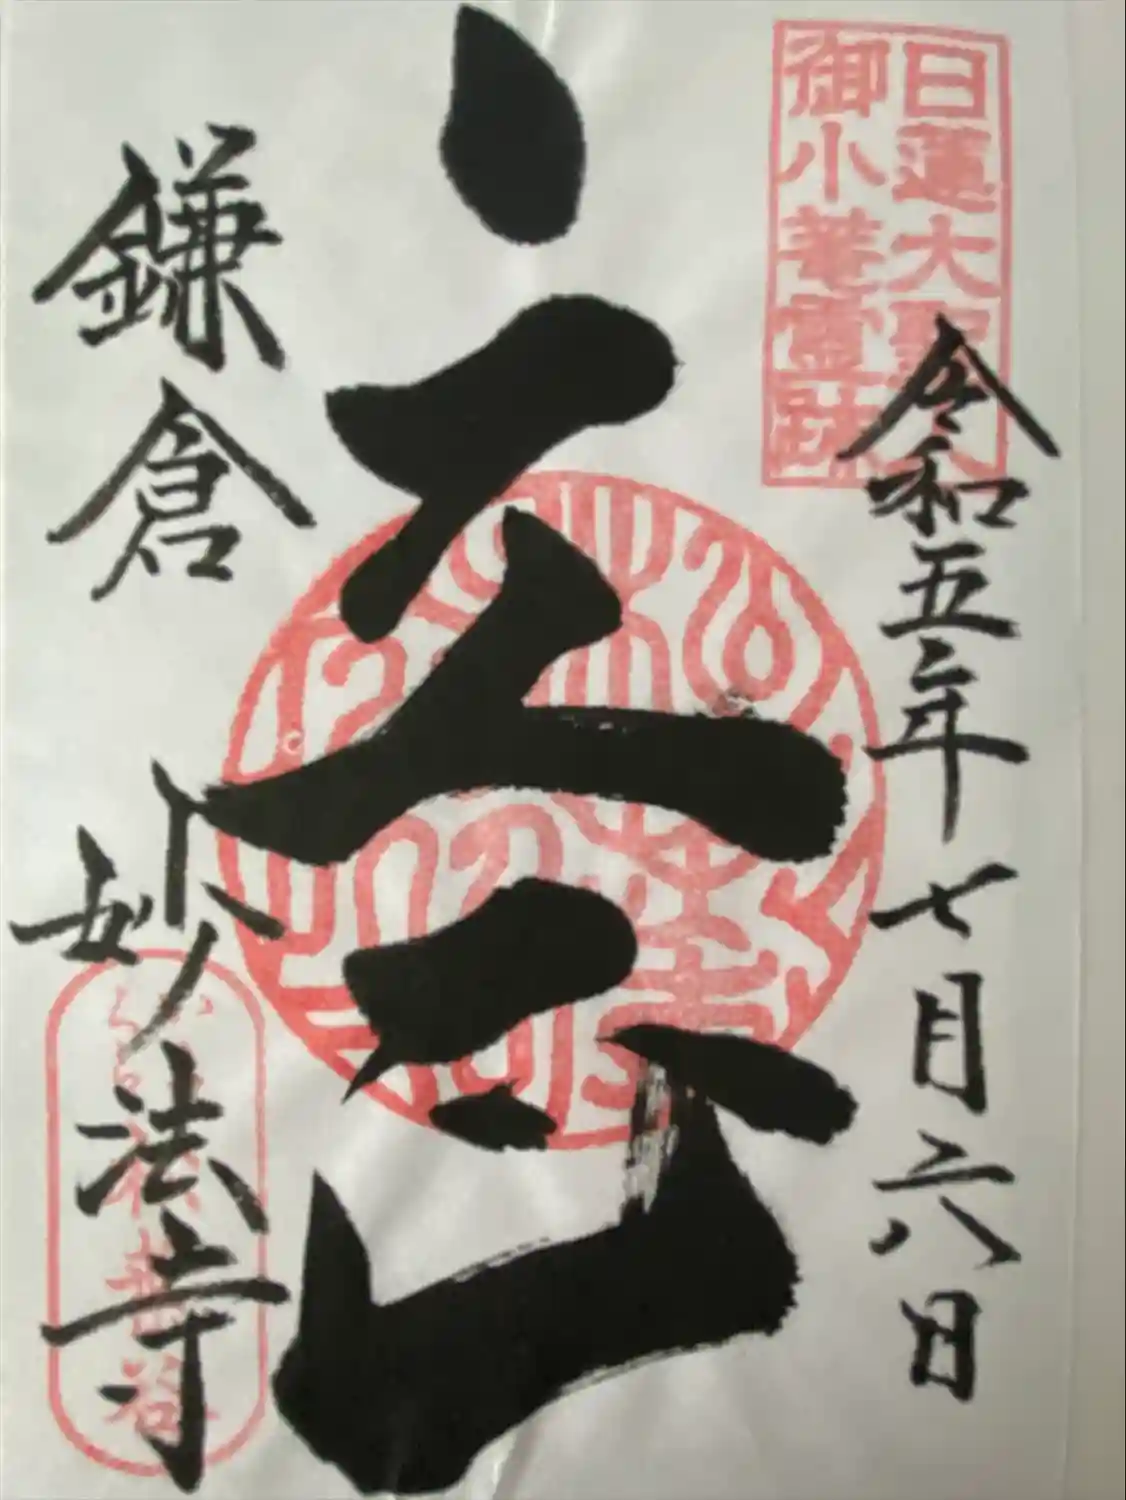 日蓮大聖人
御小菴霊跡
令和五年七月六日
立正
鎌倉
妙法寺